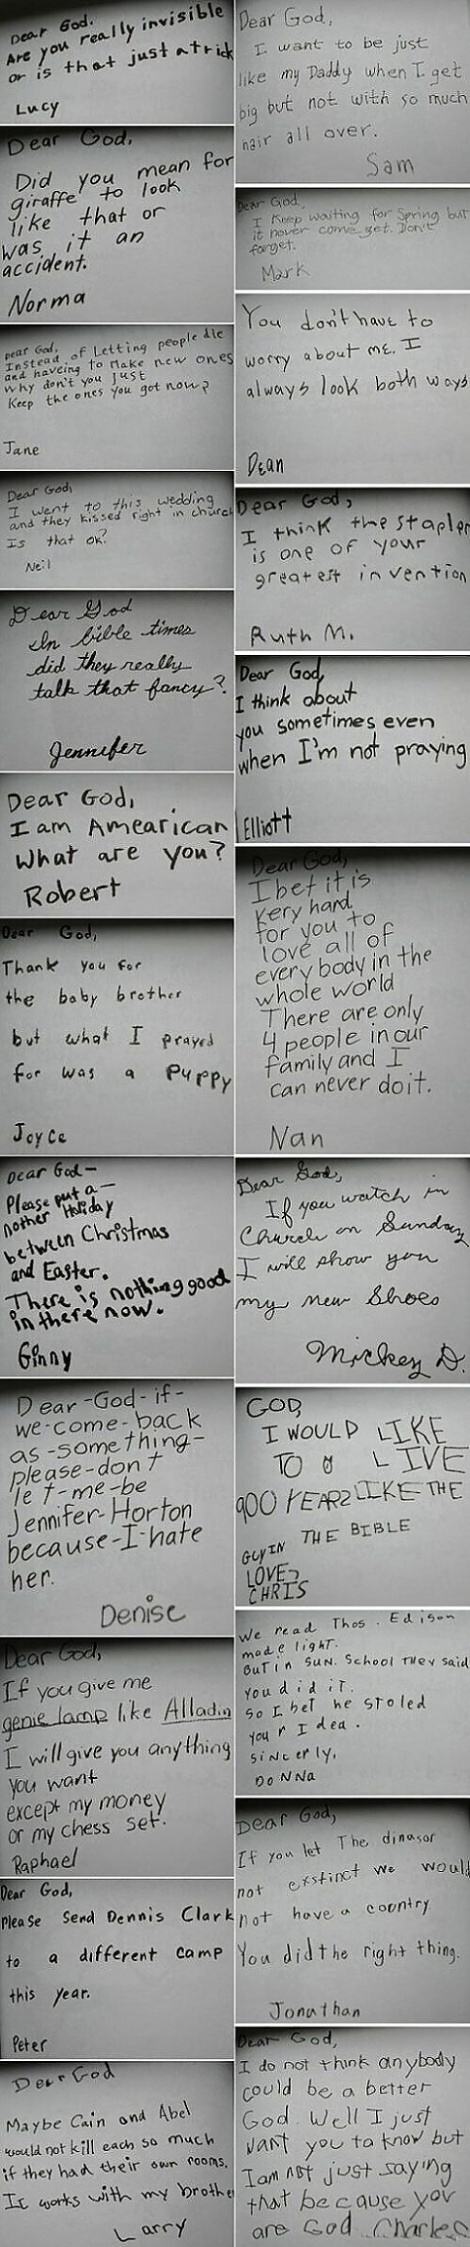 Dear God.
Are you really invisible
or is that just a trick
Lucy
Dear God,
Did you mean for
giraffe to look
like that or
was it an
accident.
Norma
Dear God,
Instead of Letting people die
and haveing to Make new ones
why don't you just
Keep the ones you got now?
Jane
Dear God,
I went to this wedding
and they kissed right in church
Is that ok?
Neil
Dear God
In bible times
did they really
talk that fancy?
Jennifer
Dear God,
I am Amearican
What are you?
Robert
Dear God,
Thank you for
the baby brother
but what I prayed
for was a puppy
Joyce
Dear God-
Please put a-
nother Holiday
between Christmas
and Easter.
There is nothing good
in there now.
Ginny
Dear-God-if-
we-come-back
as-something-
please-don't
let-me-be
Jennifer-Horton
because-I-hate
her.
Denise
Dear God,
If you give me
genie lamp like Alladin
I will give you anything
you want
except my money
or my chess set.
Raphael
Dear God,
Please Send Dennis Clark
to a different camp
this year.
Peter
Dear God
Maybe Cain and Abel
would not kill each so much
if they had their own rooms.
It works with my brothe
Larry
Dear God,
I want to be just
like my Daddy when I get
big but not with so much
hair all over.
Sam
Dear God,
I Keep waiting for Spring but
it never come yet. Don't
forget.
Mark
You don't have to
worry about me. I
always look both ways
Dean
Dear God,
I think the stapler
is one of your
greatest invention
Ruth M.
Dear God,
I think about
you sometimes even
when I'm not praying
Elliott
Dear God,
I bet it is
very hard
for you to
love all of
every body in the
whole world
There are only
4 people in our
family and I
can never do it.
Nan
Dear God,
If you watch in
Church on Sunday
I will show you
my new Shoes
Mickey D.
GOD,
I WOULD LIKE
TO LIVE
900 YEARS LIKE THE
GUY IN THE BIBLE
LOVE,
CHRIS
We read Thos. Edison
made light.
But in SUN. School They said
You did it.
So I bet he stoled
your Idea.
Sincerly,
DoNNa
Dear God,
If you let The dinasor
not exstinct we would
not have a country
You did the right thing.
Jonathan
Dear God,
I do not think anybody
could be a better
God. Well I just
want you to know but
I am not just saying
that because you
are God. Charles